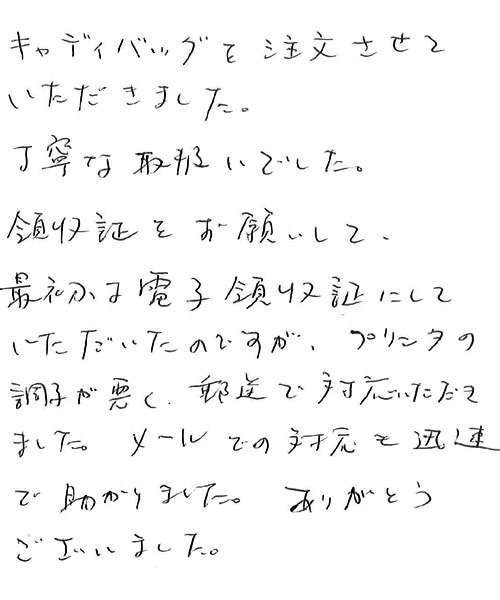 キャディバッグを注文させて
いただきました。
丁寧な取扱いでした。
領収証をお願いして、
最初は電子領収証にして
いただいたのですが、プリンタの
調子が悪く、郵送で対応いただき
ました。メールでの対応も迅速
で助かりました。ありがとう
ございました。